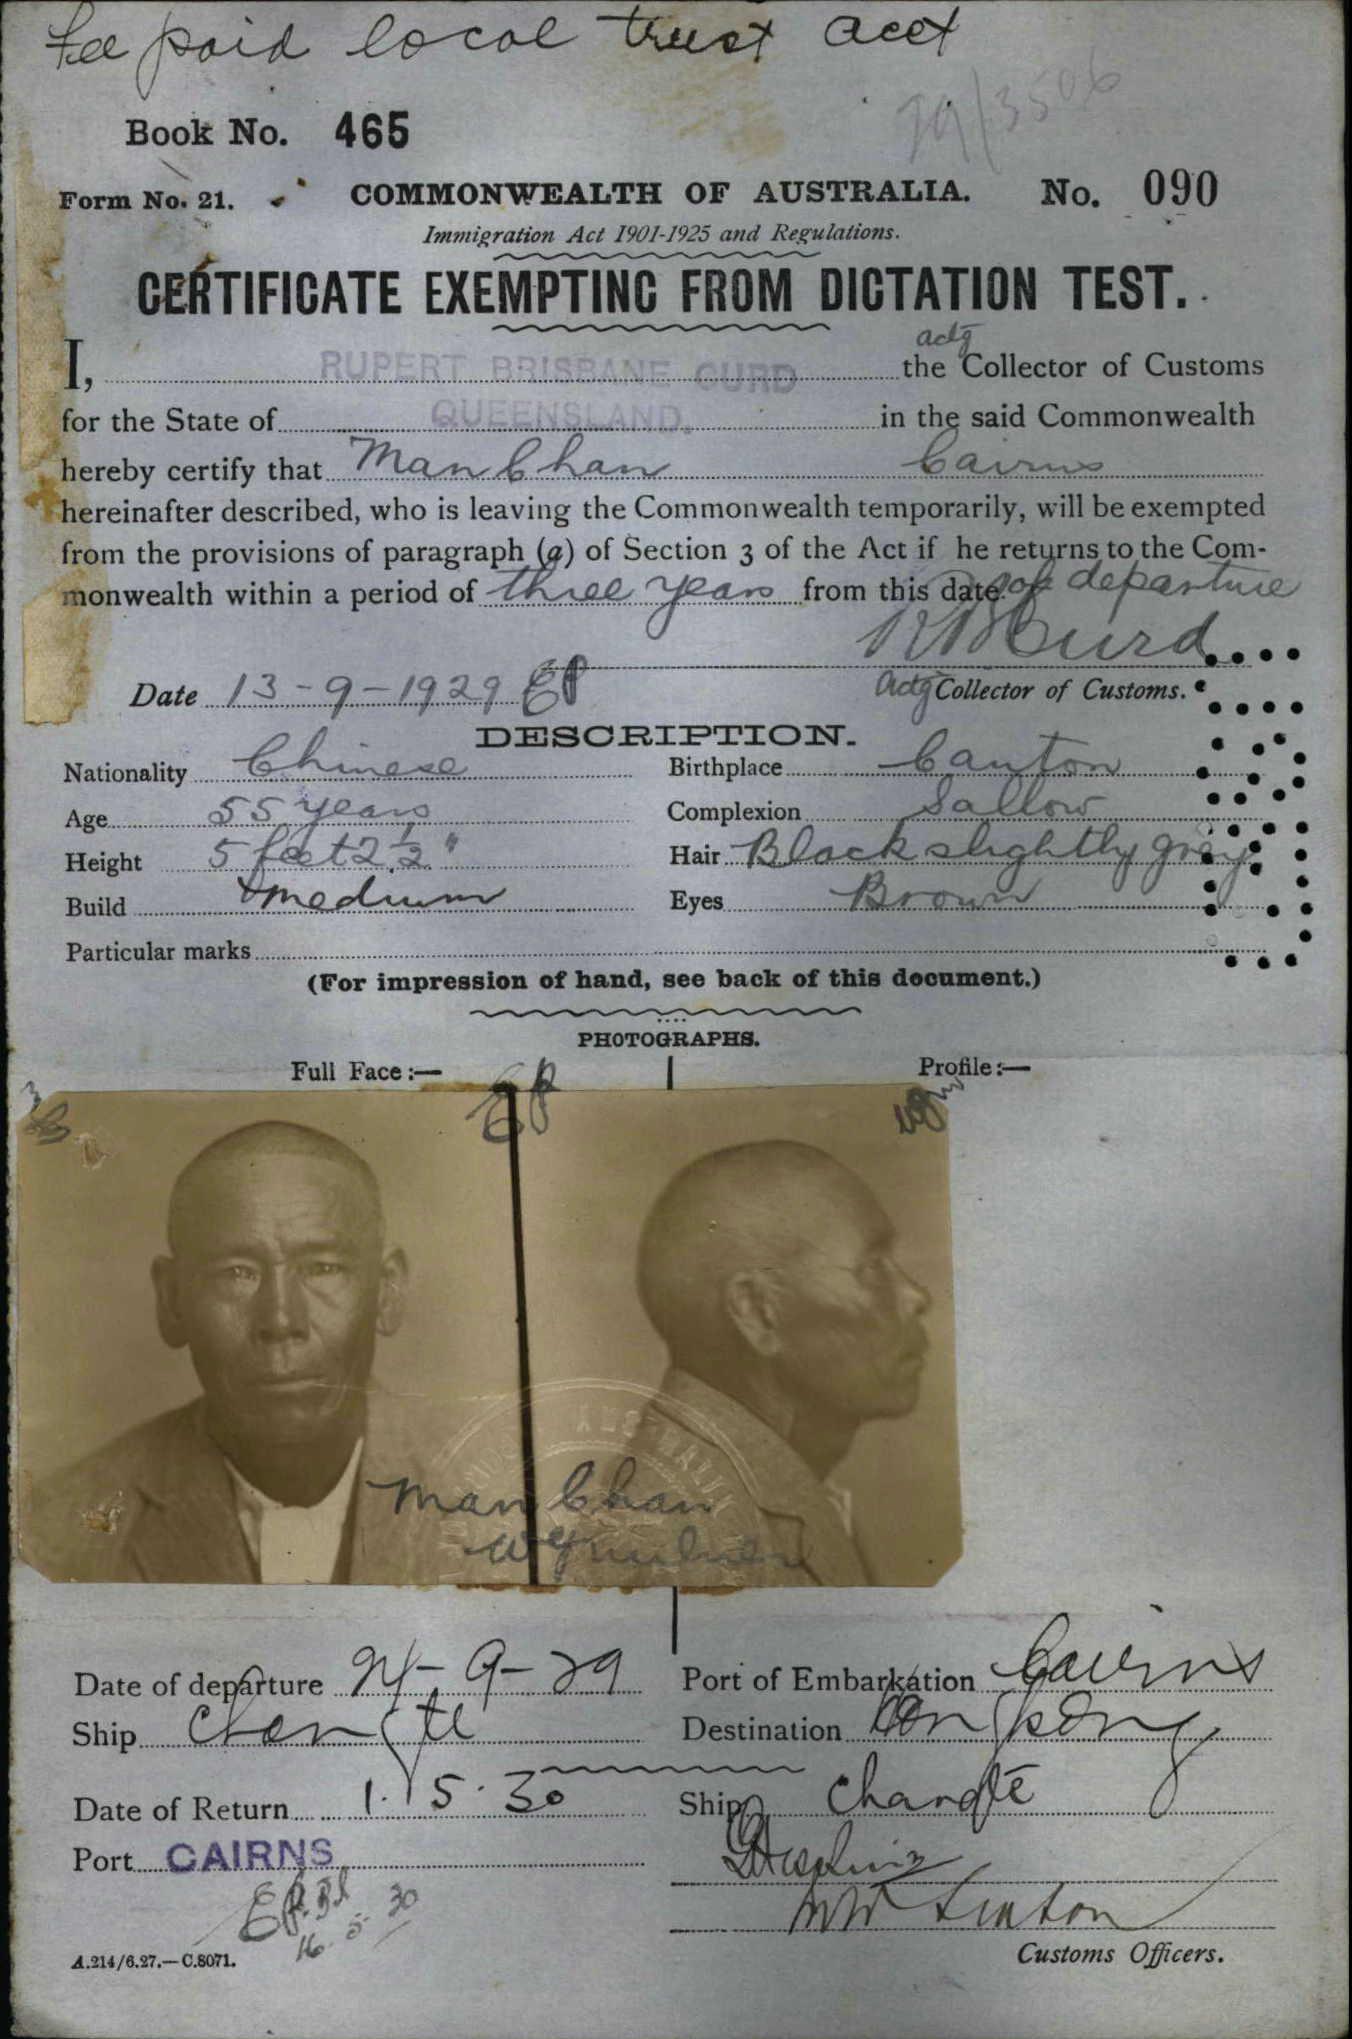 Fee paid local trust acct
29/3506
Book No. 465
Form No. 21. COMMONWEALTH OF AUSTRALIA. No. 090
Immigration Act 1901-1925 and Regulations.
CERTIFICATE EXEMPTING FROM DICTATION TEST.
I, RUPERT BRISBANE CURD the actg Collector of Customs
for the State of QUEENSLAND. in the said Commonwealth
hereby certify that Man Chan Cairns
hereinafter described, who is leaving the Commonwealth temporarily, will be exempted
from the provisions of paragraph (a) of Section 3 of the Act if he returns to the Com-
monwealth within a period of three years from this date of departure
R B Curd
Date 13-9-1929 EP actg Collector of Customs.
DESCRIPTION.
Nationality Chinese Birthplace Canton
Age 55 years Complexion Sallow
Height 5 feet 2½" Hair Black slightly grey
Build medium Eyes Brown
Particular marks
(For impression of hand, see back of this document.)
PHOTOGRAPHS.
Full Face:— Profile:—
EP
AUSTRALIA
Man Chan
Date of departure 24-9-29 Port of Embarkation Cairns
Ship Changte Destination Hongkong
Date of Return 1.5.30 Ship Changte
Port CAIRNS
16.5.30
Customs Officers.
A.214/6.27.—C.8071.